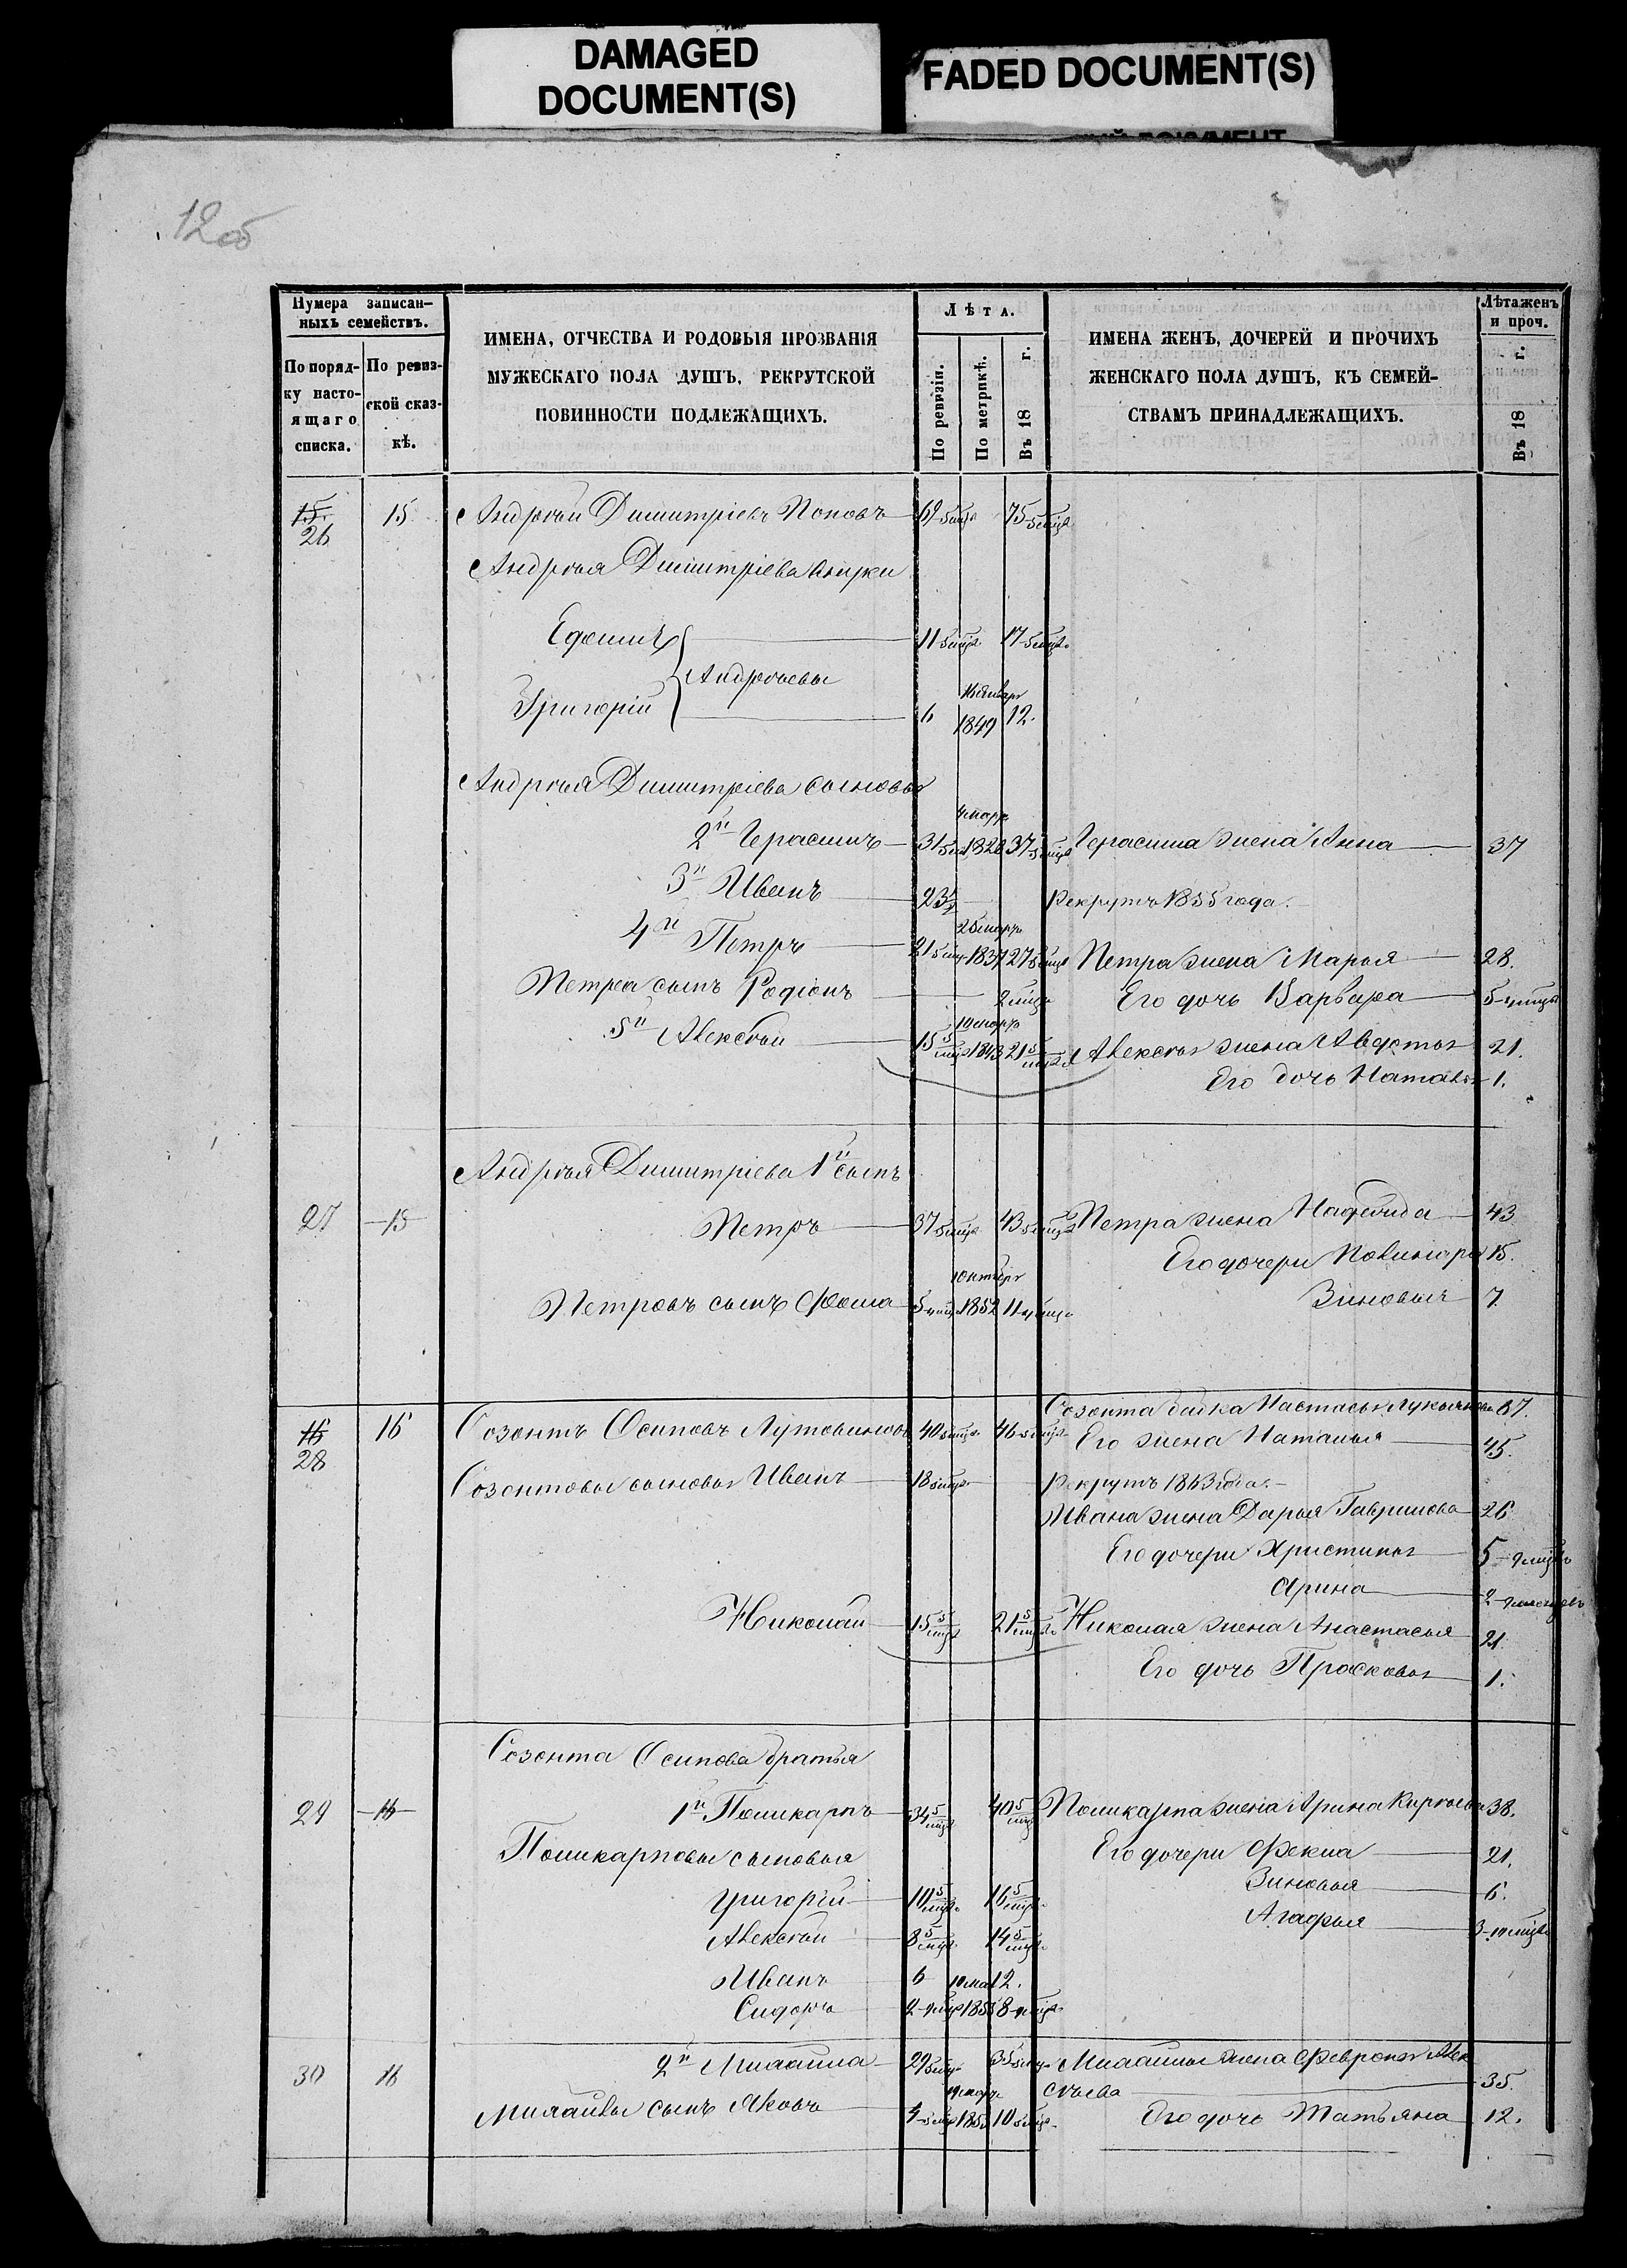 DAMAGED
DOCUMENT(S)
FADED DOCUMENT(S)
12об
Нумера записан-
ныхъ семействъ.
По поряд-
ку насто-
ящаго
списка.
По ревиз-
ской сказ-
кѣ.
ИМЕНА, ОТЧЕСТВА И РОДОВЫЯ ПРОЗВАНІЯ
МУЖЕСКАГО ПОЛА ДУШЪ, РЕКРУТСКОЙ
ПОВИННОСТИ ПОДЛЕЖАЩИХЪ.
Лѣта.
По ревизіи.
По метрикѣ.
Въ 18 г.
ИМЕНА ЖЕНЪ, ДОЧЕРЕЙ И ПРОЧИХЪ
ЖЕНСКАГО ПОЛА ДУШЪ, КЪ СЕМЕЙ-
СТВАМЪ ПРИНАДЛЕЖАЩИХЪ.
Лѣта женъ
и проч.
Въ 18 г.
15 15 Андрей Димитріевъ Поповъ 69 5 мцв 75 5 мцв
26
Андрея Димитріева внуки
Ефимъ 11 5 мцв 17 5 мцв
Андреевы
16 Январ
Григорій 6 1849 12.
Андрея Димитріева сыновья
4 март
2й Герасимъ 31 5 1828 37 5 мцв Герасима жена Анна 37
3й Иванъ 23 Рекрутъ 1855 года.
25 март
4й Петръ 21 5 мцв 1837 27 5 мцв Петра жена Марья 28.
Петра сынъ Родіонъ 2 мцв Его дочь Варвара 5 4 мцв
5й Алексѣй 15 5 мцв 1843 21 5 мцв Алексѣя жена Авдотья 21.
Его дочь Наталья 1.
Андрея Димитріева 1й сынъ
27 15 Петръ 37 5 мцв 43 5 мцв Петра жена 43
Его дочери 15.
Петровъ сынъ Фома 5 1852 11 Зиновья 7
Созонта Настасья Лукьянова 67.
16 16 Созонтъ Осиповъ Лутовиновъ 40 5 мцв 46 5 мцв Его жена Наталья 45.
28
Созонтовы сыновья Иванъ 18 5 мцв Рекрутъ 1863 года.
Ивана жена Дарья Гаврилова 26
Его дочери Христинья 5
Арина 2
Николай 15 5 мцв 21 5 мцв Николая жена Анастасья 21
Его дочь Прасковья 1.
Созонта Осипова братья
29 16 1й Поликарпъ 34 5 мцв 40 5 мцв Поликарпа жена Арина Киреева 38.
Поликарповы сыновья Его дочери Фекла 21.
Григорій 10 5 мцв 16 5 мцв Зиновья 6.
Алексѣй 8 5 мцв 14 5 мцв Агафья 3 10 мцв
Иванъ 6 12.
Сидоръ 2 1855 8
30 16 2й Михайла 29 5 мцв 35 5 мцв Михайлы жена Февронья Алек
сѣева 35.
Михайлы сынъ Яковъ 4 10 Его дочь Татьяна 12.